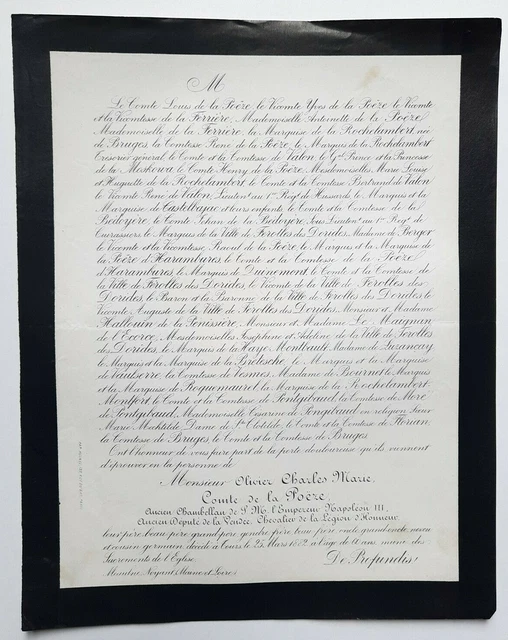 M
Le Comte Louis de la Poëze, le Vicomte Yves de la Poëze, le Vicomte
et la Vicomtesse de la Ferrière, Mademoiselle Antoinette de la Poëze
Mademoiselle de la Ferrière, la Marquise de la Rochelambert née
de Bruges, la Comtesse René de la Poëze, le Marquis de la Rochelambert
Trésorier général, le Comte et la Comtesse de Valon, le Gal Prince et la Princesse
de la Moskowa, le Comte Henry de la Poëze, Mesdemoiselles Marie Louise
et Huguette de la Rochelambert, le Comte et la Comtesse Bertrand de Valon
le Vicomte René de Valon, Lieutent au 1er Regt de Hussards, le Marquis et la
Marquise de Castelbajac et leurs enfants, le Comte et la Comtesse de la
Bédoyère, le Comte Jehan de la Bédoyère, Sous Lieutent au Regt de
Cuirassiers, le Marquis de la Ville de Férolles des Dorides, Madame de Berger
le Vicomte et la Vicomtesse Raoul de la Poëze, le Marquis et la Marquise de
la Poëze d'Harambures, le Comte et la Comtesse de la Poëze
d'Harambures, le Marquis de Dainemont, le Comte et la Comtesse de
la Ville de Férolles des Dorides, le Vicomte de la Ville de Férolles des
Dorides, le Baron et la Baronne de la Ville de Férolles des Dorides, le
Vicomte Auguste de la Ville de Férolles des Dorides, Monsieur et Madame
Hallouin de la Pénissière, Monsieur et Madame Le Maignan
de l'Ecorce, Mesdemoiselles Joséphine et Adeline de la Ville de Férolles
des Dorides, le Marquis de la Haye Montbault, Madame de Luzançay
le Marquis et la Marquise de la Bretesche, le Marquis et la Marquise
de Vaulserre, la Comtesse de Vesins, Madame de Bournet, le Marquis
et la Marquise de Roquemaurel, la Marquise de la Rochelambert
Monfort, le Comte et la Comtesse de Pontgibaud, la Comtesse de More
de Pontgibaud, Mademoiselle Césarine de Pongibaud en religion Sœur
Marie Mathilde, Dame de Ste Clotilde, le Comte et la Comtesse de Florian
la Comtesse de Bruges, le Comte et la Comtesse de Bruges
Ont l'honneur de vous faire part de la perte douloureuse qu'ils viennent
d'éprouver en la personne de
Monsieur Olivier Charles Marie,
Comte de la Poëze,
Ancien Chambellan de S. M. l'Empereur Napoléon III,
Ancien Député de la Vendée, Chevalier de la Légion d'Honneur,
leur père, beau-père, grand-père, gendre, frère, beau-frère, oncle, grand-oncle, neveu
et cousin germain, décédé à Tours, le 25 Mars 1882, à l'âge de 61 ans, muni des
Sacrements de l'Eglise.
De Profundis!
Noyant (Maine et Loire)